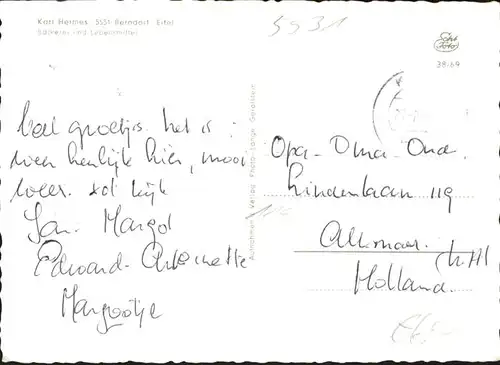 Karl Hermes, 5531 Berndorf Eifel
Bäckerei und Lebensmittel
5531
Echt Foto
38/69
Veel groetjes. het is
weer heerlijk hier, mooi
weer. tot kijk
Jan. Margot
Edward. Antoinette
Margootje
Aufnahme u. Verlag Photo-Lange Gerolstein
Opa - Oma - Ond.
Lindenlaan 119
Alkmaar. (N.H)
Holland.